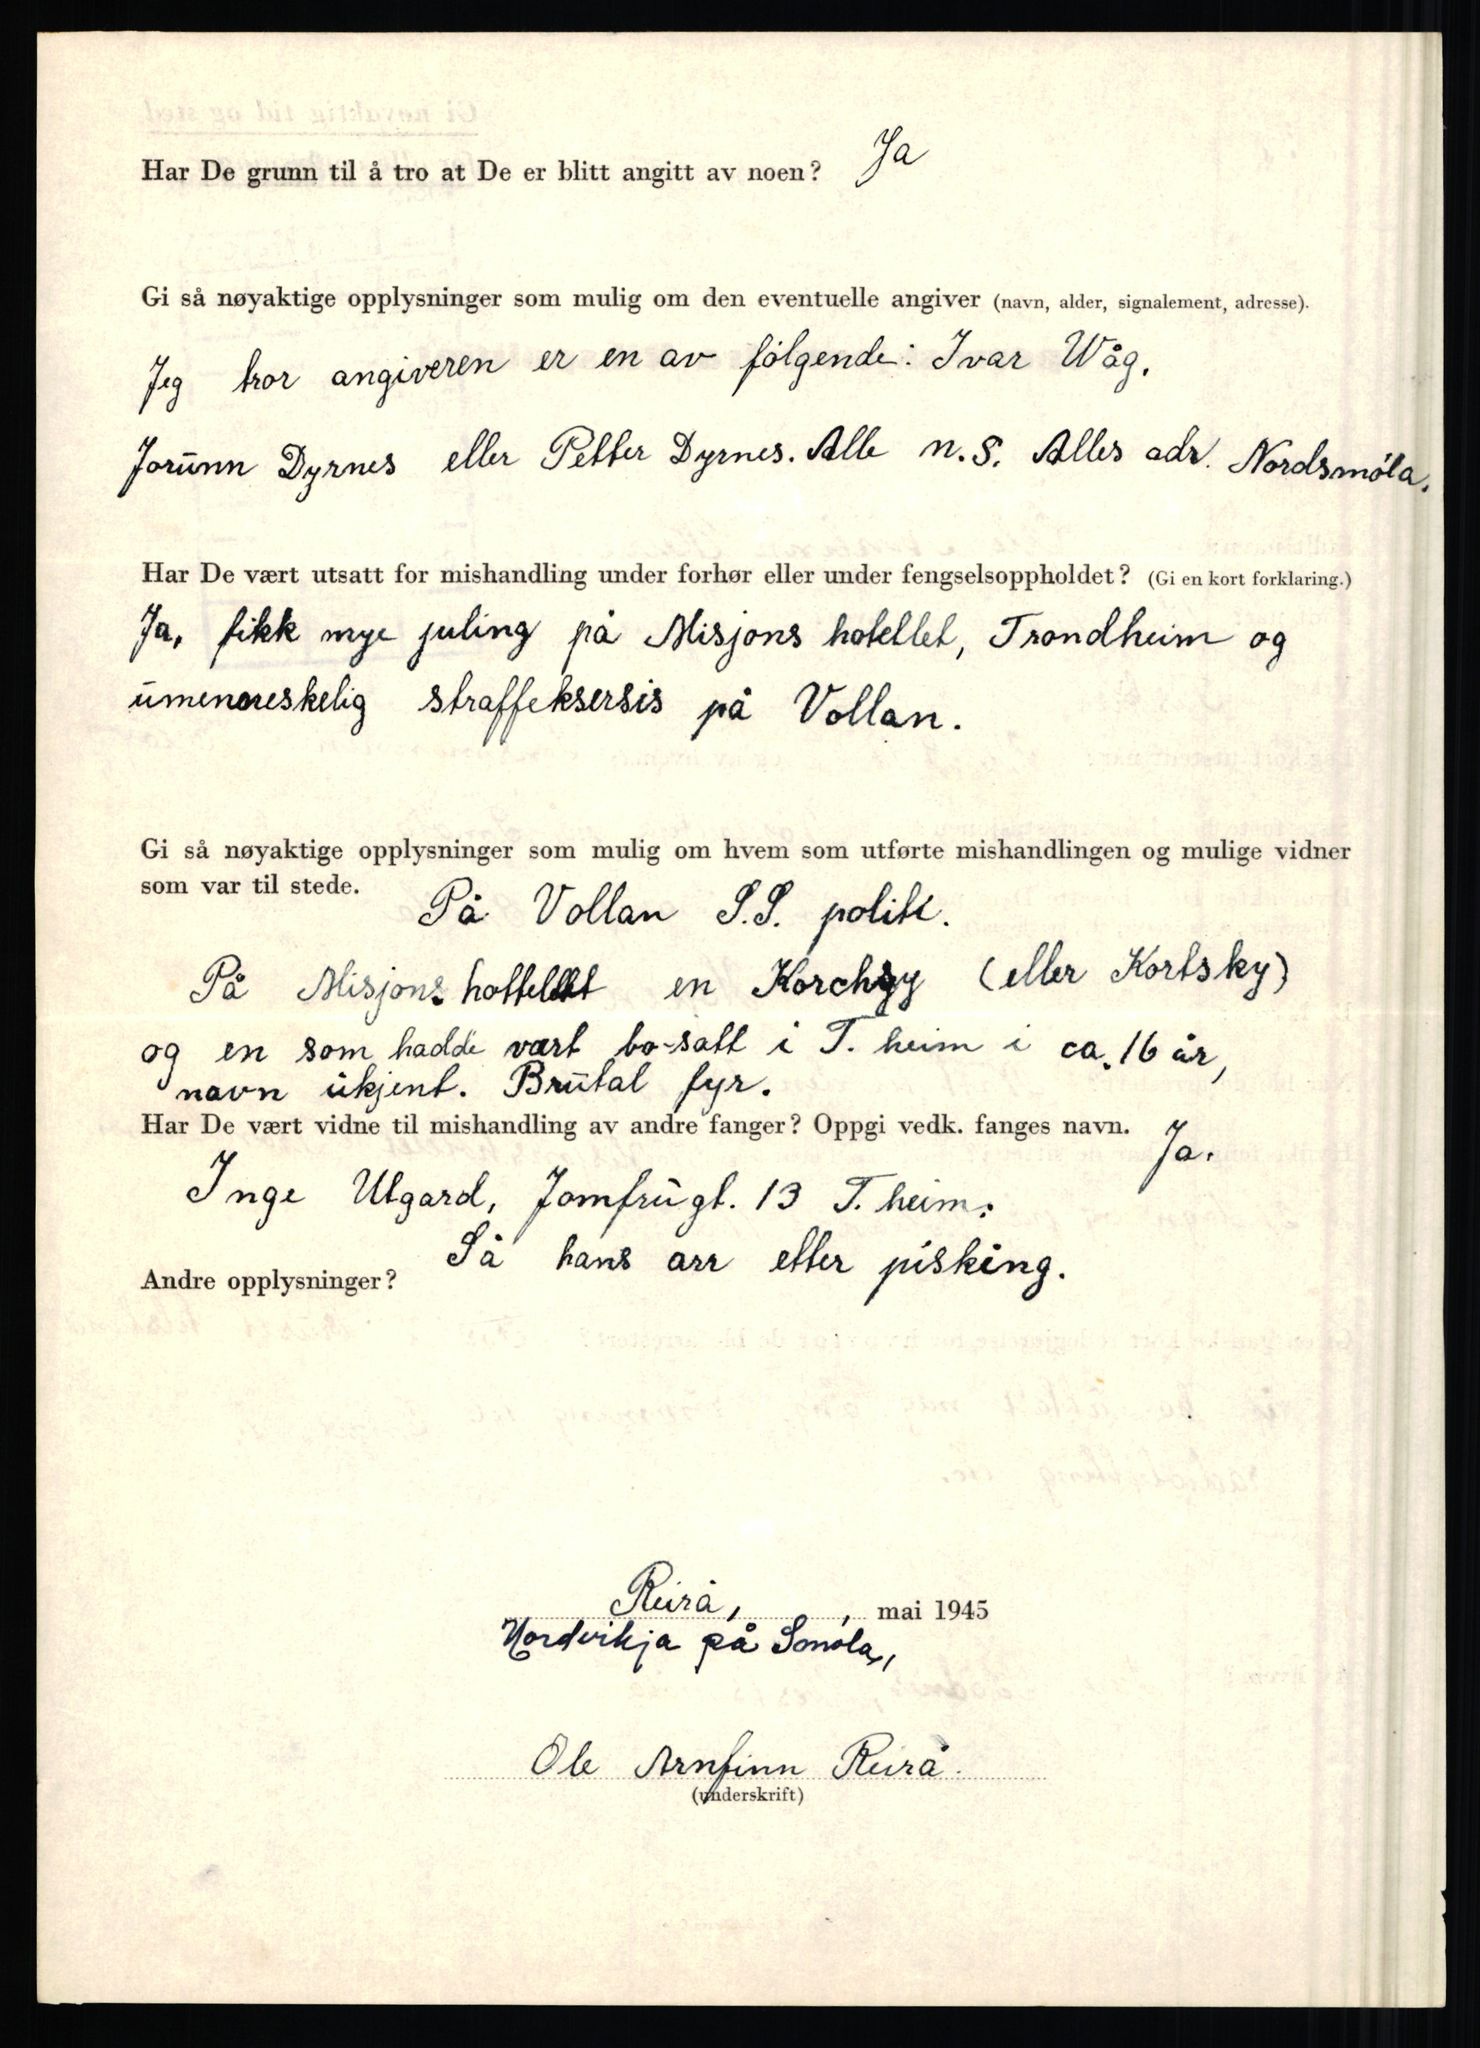 Har De grunn til å tro at De er blitt angitt av noen? Ja
Gi så nøyaktige opplysninger som mulig om den eventuelle angiver (navn, alder, signalement, adresse).
Jeg tror angiveren er en av følgende: Ivar Wåg,
Jorunn Dyrnes eller Petter Dyrnes. Alle n.S. Alles adr. Nordsmøla.
Har De vært utsatt for mishandling under forhør eller under fengselsoppholdet? (Gi en kort forklaring.)
Ja, fikk mye juling på Misjons hotellet, Trondheim og
umenneskelig straffeksersis på Vollan.
Gi så nøyaktige opplysninger som mulig om hvem som utførte mishandlingen og mulige vidner
som var til stede.
På Vollan S.S. politi.
På Misjons hottellet en Korchsy (eller Kortsky)
og en som hadde vært bo-satt i T. heim i ca. 16 år,
navn ukjent. Brutal fyr.
Har De vært vidne til mishandling av andre fanger? Oppgi vedk. fanges navn. Ja.
Inge Utgard, Jomfrugt. 13 T. heim.
Så hans arr etter pisking.
Andre opplysninger?
Reirå, , mai 1945
Nordvikja på Smøla,
Ole Arnfinn Reirå.
(underskrift)